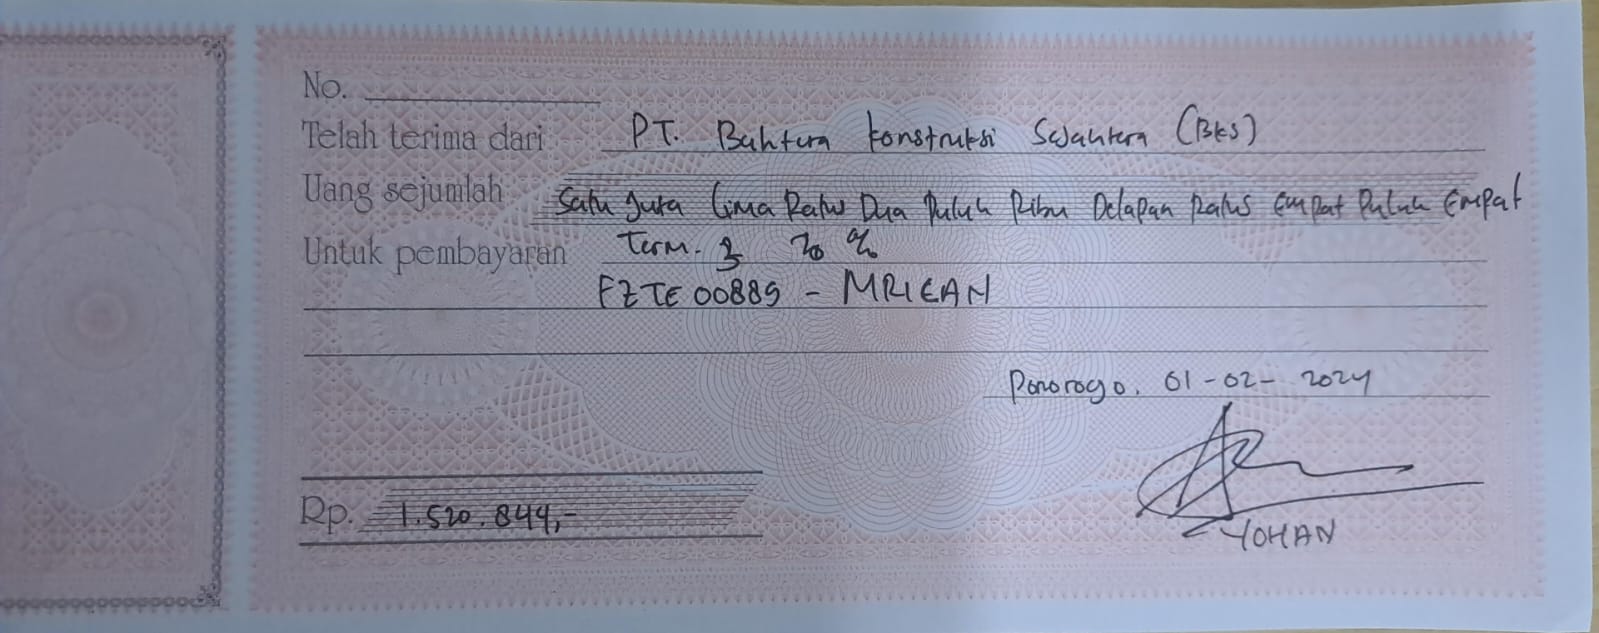 No.
Telah terima dari PT. Bahtera konstruksi Sejahtera (BKS)
Uang sejumlah Satu Juta Lima Ratus Dua Puluh Ribu Delapan Ratus Empat Puluh Empat
Untuk pembayaran Term. 3 20 %
FZTE00889 - MRICAN
Ponorogo. 01-02-2024
Rp. 1.520.844,-
YOHAN